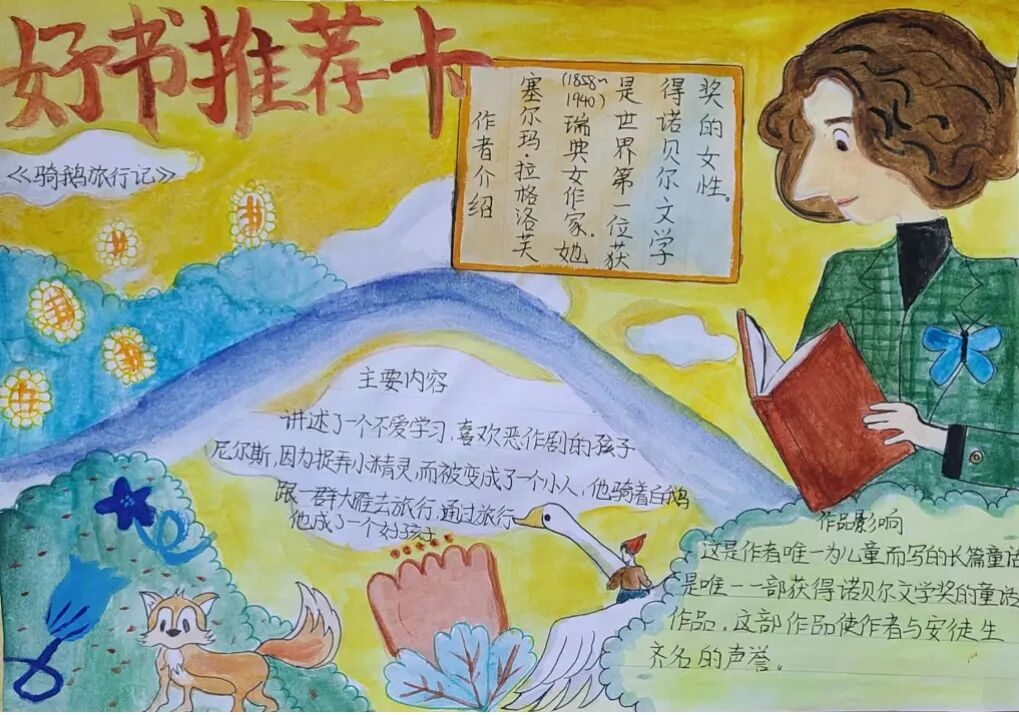 好书推荐卡
《骑鹅旅行记》
作者介绍
塞尔玛·拉格洛芙
(1858~1940)瑞典女作家.她
是世界第一位获
得诺贝尔文学
奖的女性。
主要内容
讲述了一个不爱学习,喜欢恶作剧的孩子
尼尔斯,因为捉弄小精灵,而被变成了一个小人,他骑着白鹅
跟一群大雁去旅行,通过旅行
他成了一个好孩子
作品影响
这是作者唯一为儿童而写的长篇童话
是唯一一部获得诺贝尔文学奖的童话
作品,这部作品使作者与安徒生
齐名的声誉。